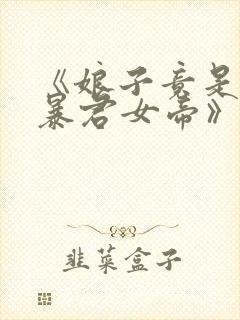 《娘子竟是
暴君女帝》
韭菜盒子